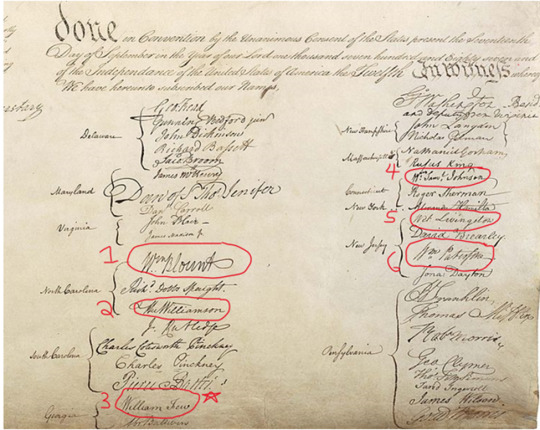 done in Convention by the Unanimous Consent of the States present the Seventeenth
Day of September in the Year of our Lord one thousand seven hundred and Eighty seven and
of the Independance of the United States of America the Twelfth In witness
We have hereunto subscribed our Names,
Delaware
Geo: Read
Gunning Bedford jun
John Dickinson
Richard Bassett
Jaco: Broom
Maryland
James McHenry
Dan of St Thos. Jenifer
Danl Carroll
Virginia
John Blair
James Madison Jr
North Carolina
1
Wm. Blount
Richd. Dobbs Spaight
2
Hu Williamson
South Carolina
J. Rutledge
Charles Cotesworth Pinckney
Charles Pinckney
Pierce Butler
Georgia
3
William Few
Abr Baldwin
Go. Washington
and deputy from Virginia
New Hampshire
John Langdon
Nicholas Gilman
Massachusetts
Nathaniel Gorham
Rufus King
Connecticut
4
Wm. Saml. Johnson
Roger Sherman
New York
Alexander Hamilton
New Jersey
5
Wil: Livingston
David Brearley
6
Wm. Paterson
Jona: Dayton
Pensylvania
B Franklin
Thomas Mifflin
Robt Morris
Geo. Clymer
Thos. FitzSimons
Jared Ingersoll
James Wilson
Gouv Morris